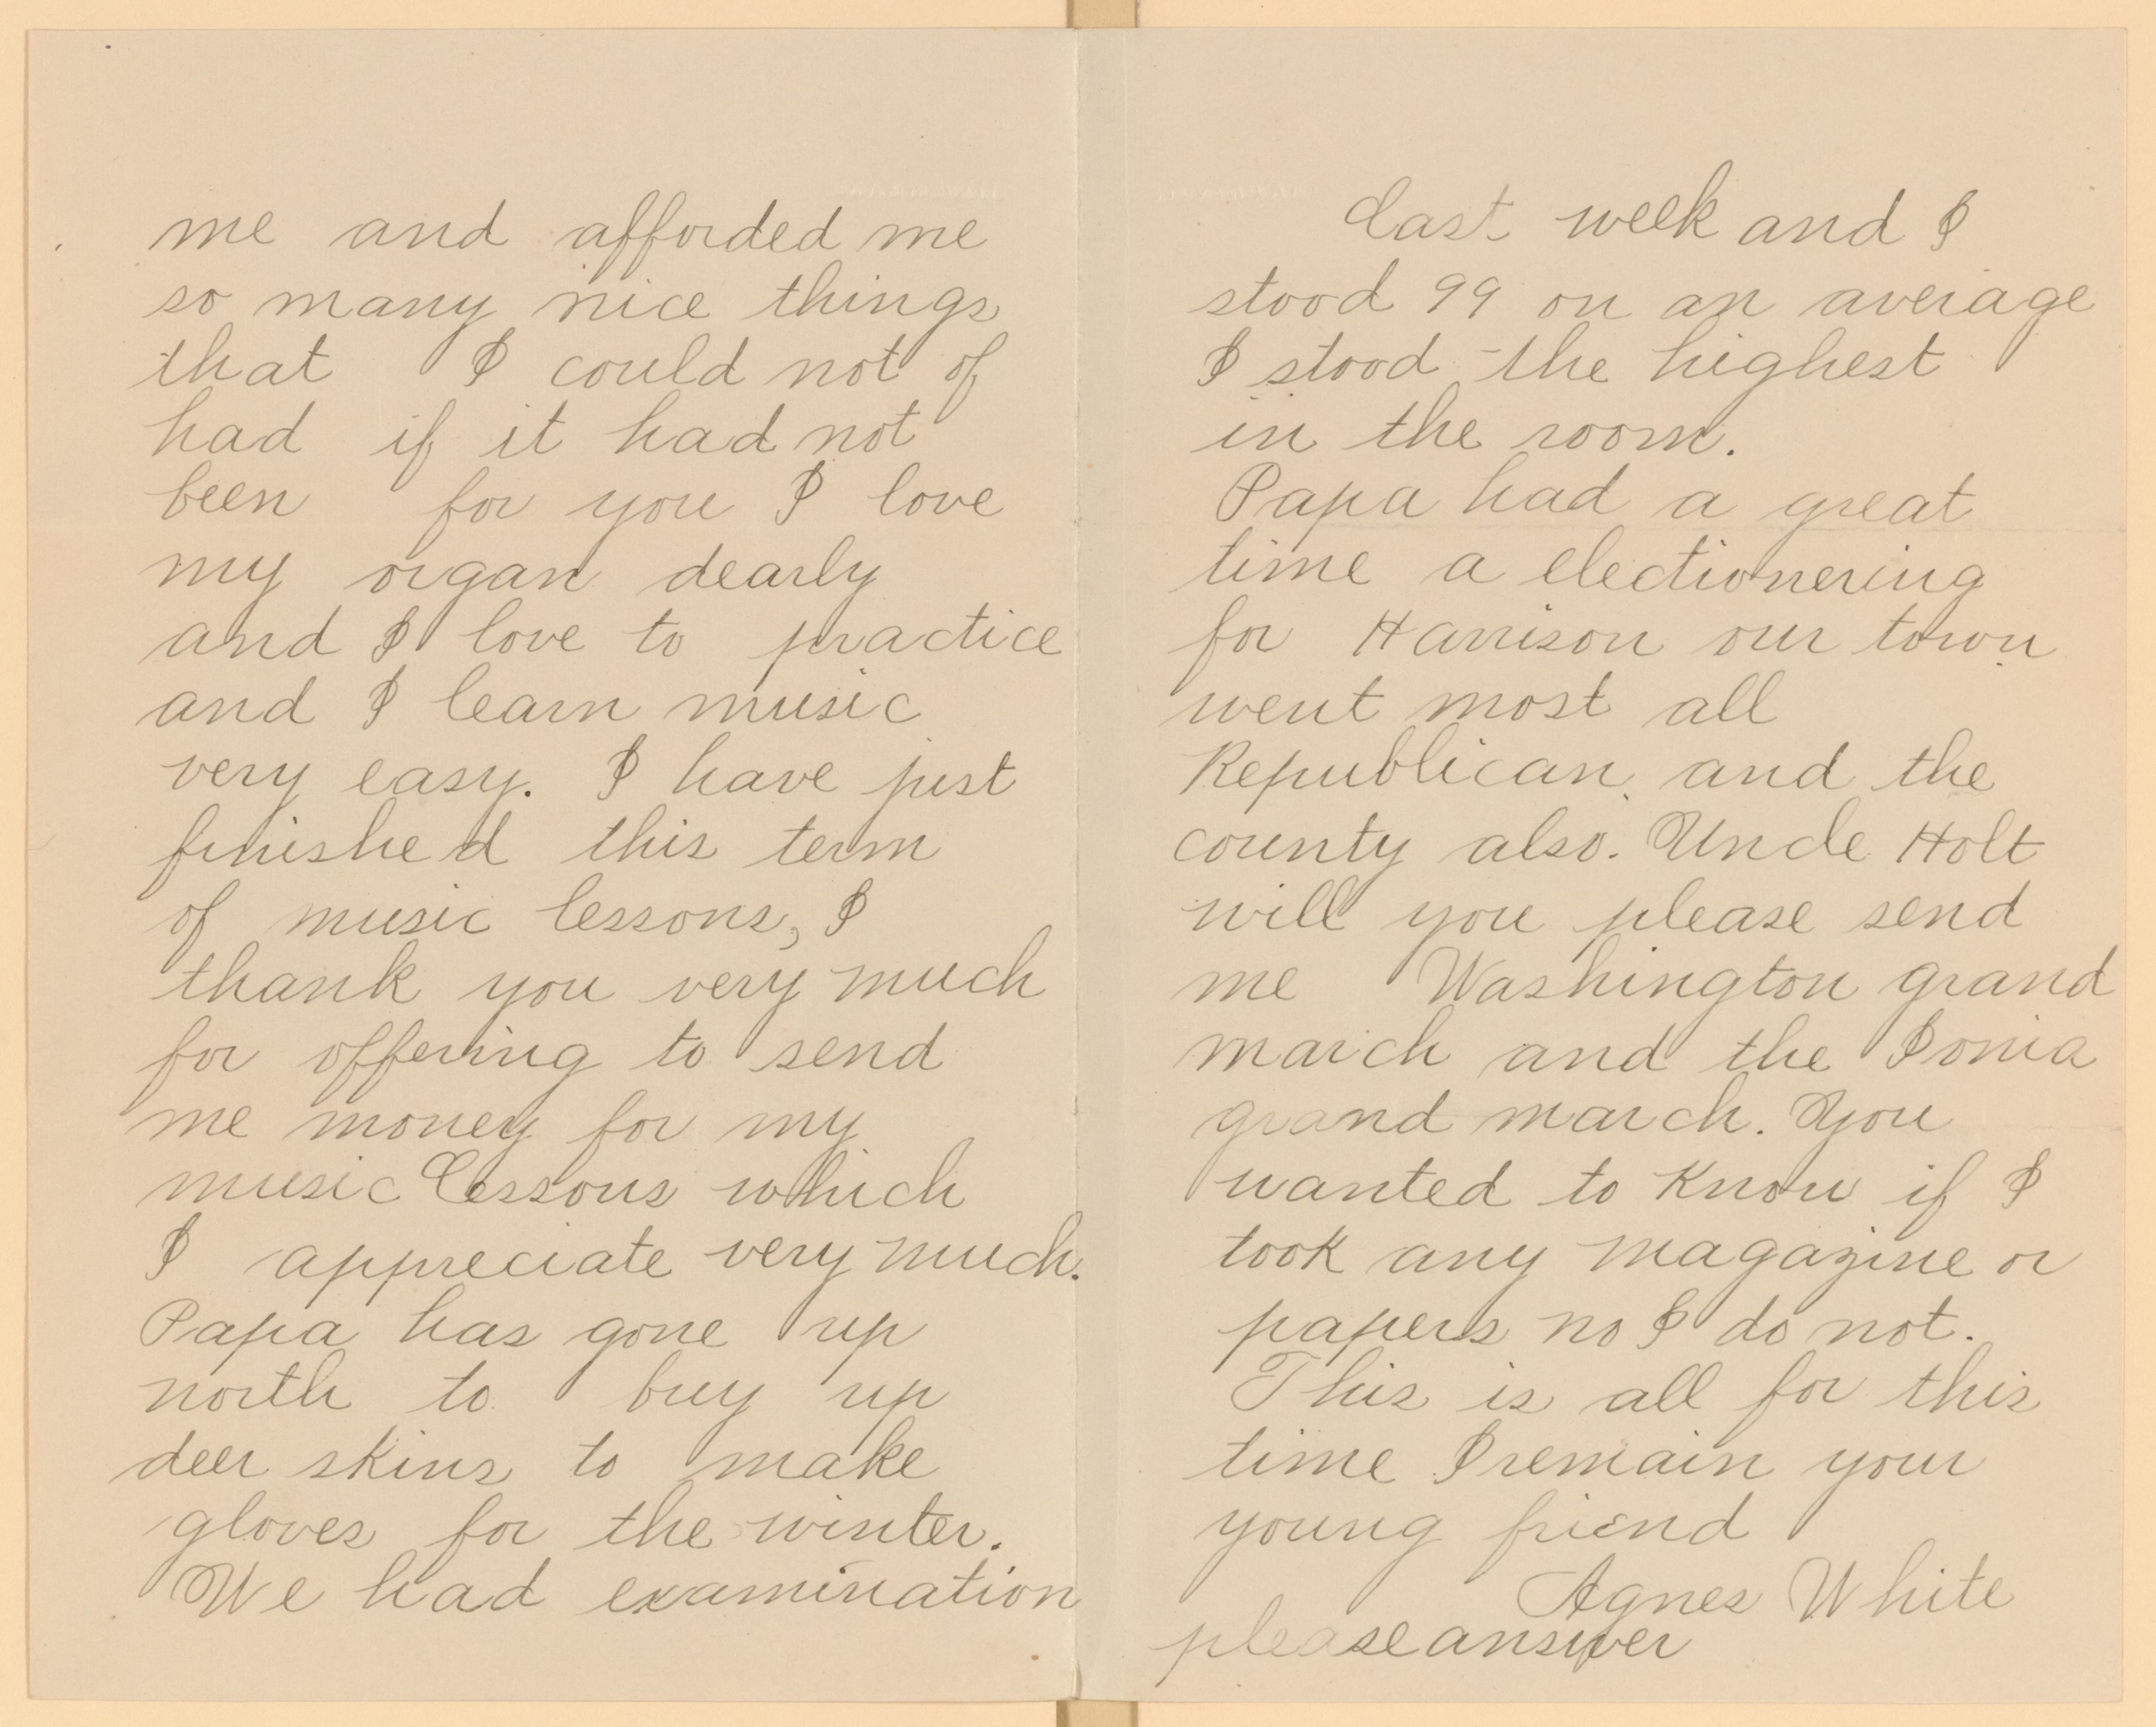 me and afforded me
so many nice things
that I could not of
had if it had not
been for you I love
my organ dearly
and I love to practice
and I learn music
very easy. I have just
finished this term
of music lessons, I
thank you very much
for offering to send
me money for my
music lessons which
I appreciate very much.
Papa has gone up
north to buy up
deer skins to make
gloves for the winter.
We had examination
last week and I
stood 99 on an average
I stood the highest
in the room.
Papa had a great
time a electionering
for Harrison our town
went most all
Republican, and the
county also. Uncle Holt
will you please send
me Washington grand
march and the Ionia
grand march. You
wanted to know if I
took any magazine or
papers no I do not.
This is all for this
time I remain your
young friend
Agnes White
please answer